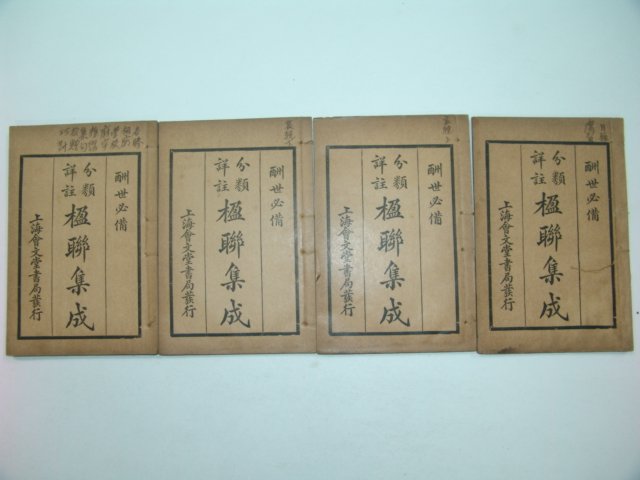 酬世必備
分類
詳註
楹聯集成
上海會文堂書局發行
酬世必備
分類
詳註
楹聯集成
上海會文堂書局發行
酬世必備
分類
詳註
楹聯集成
上海會文堂書局發行
酬世必備
分類
詳註
楹聯集成
上海會文堂書局發行